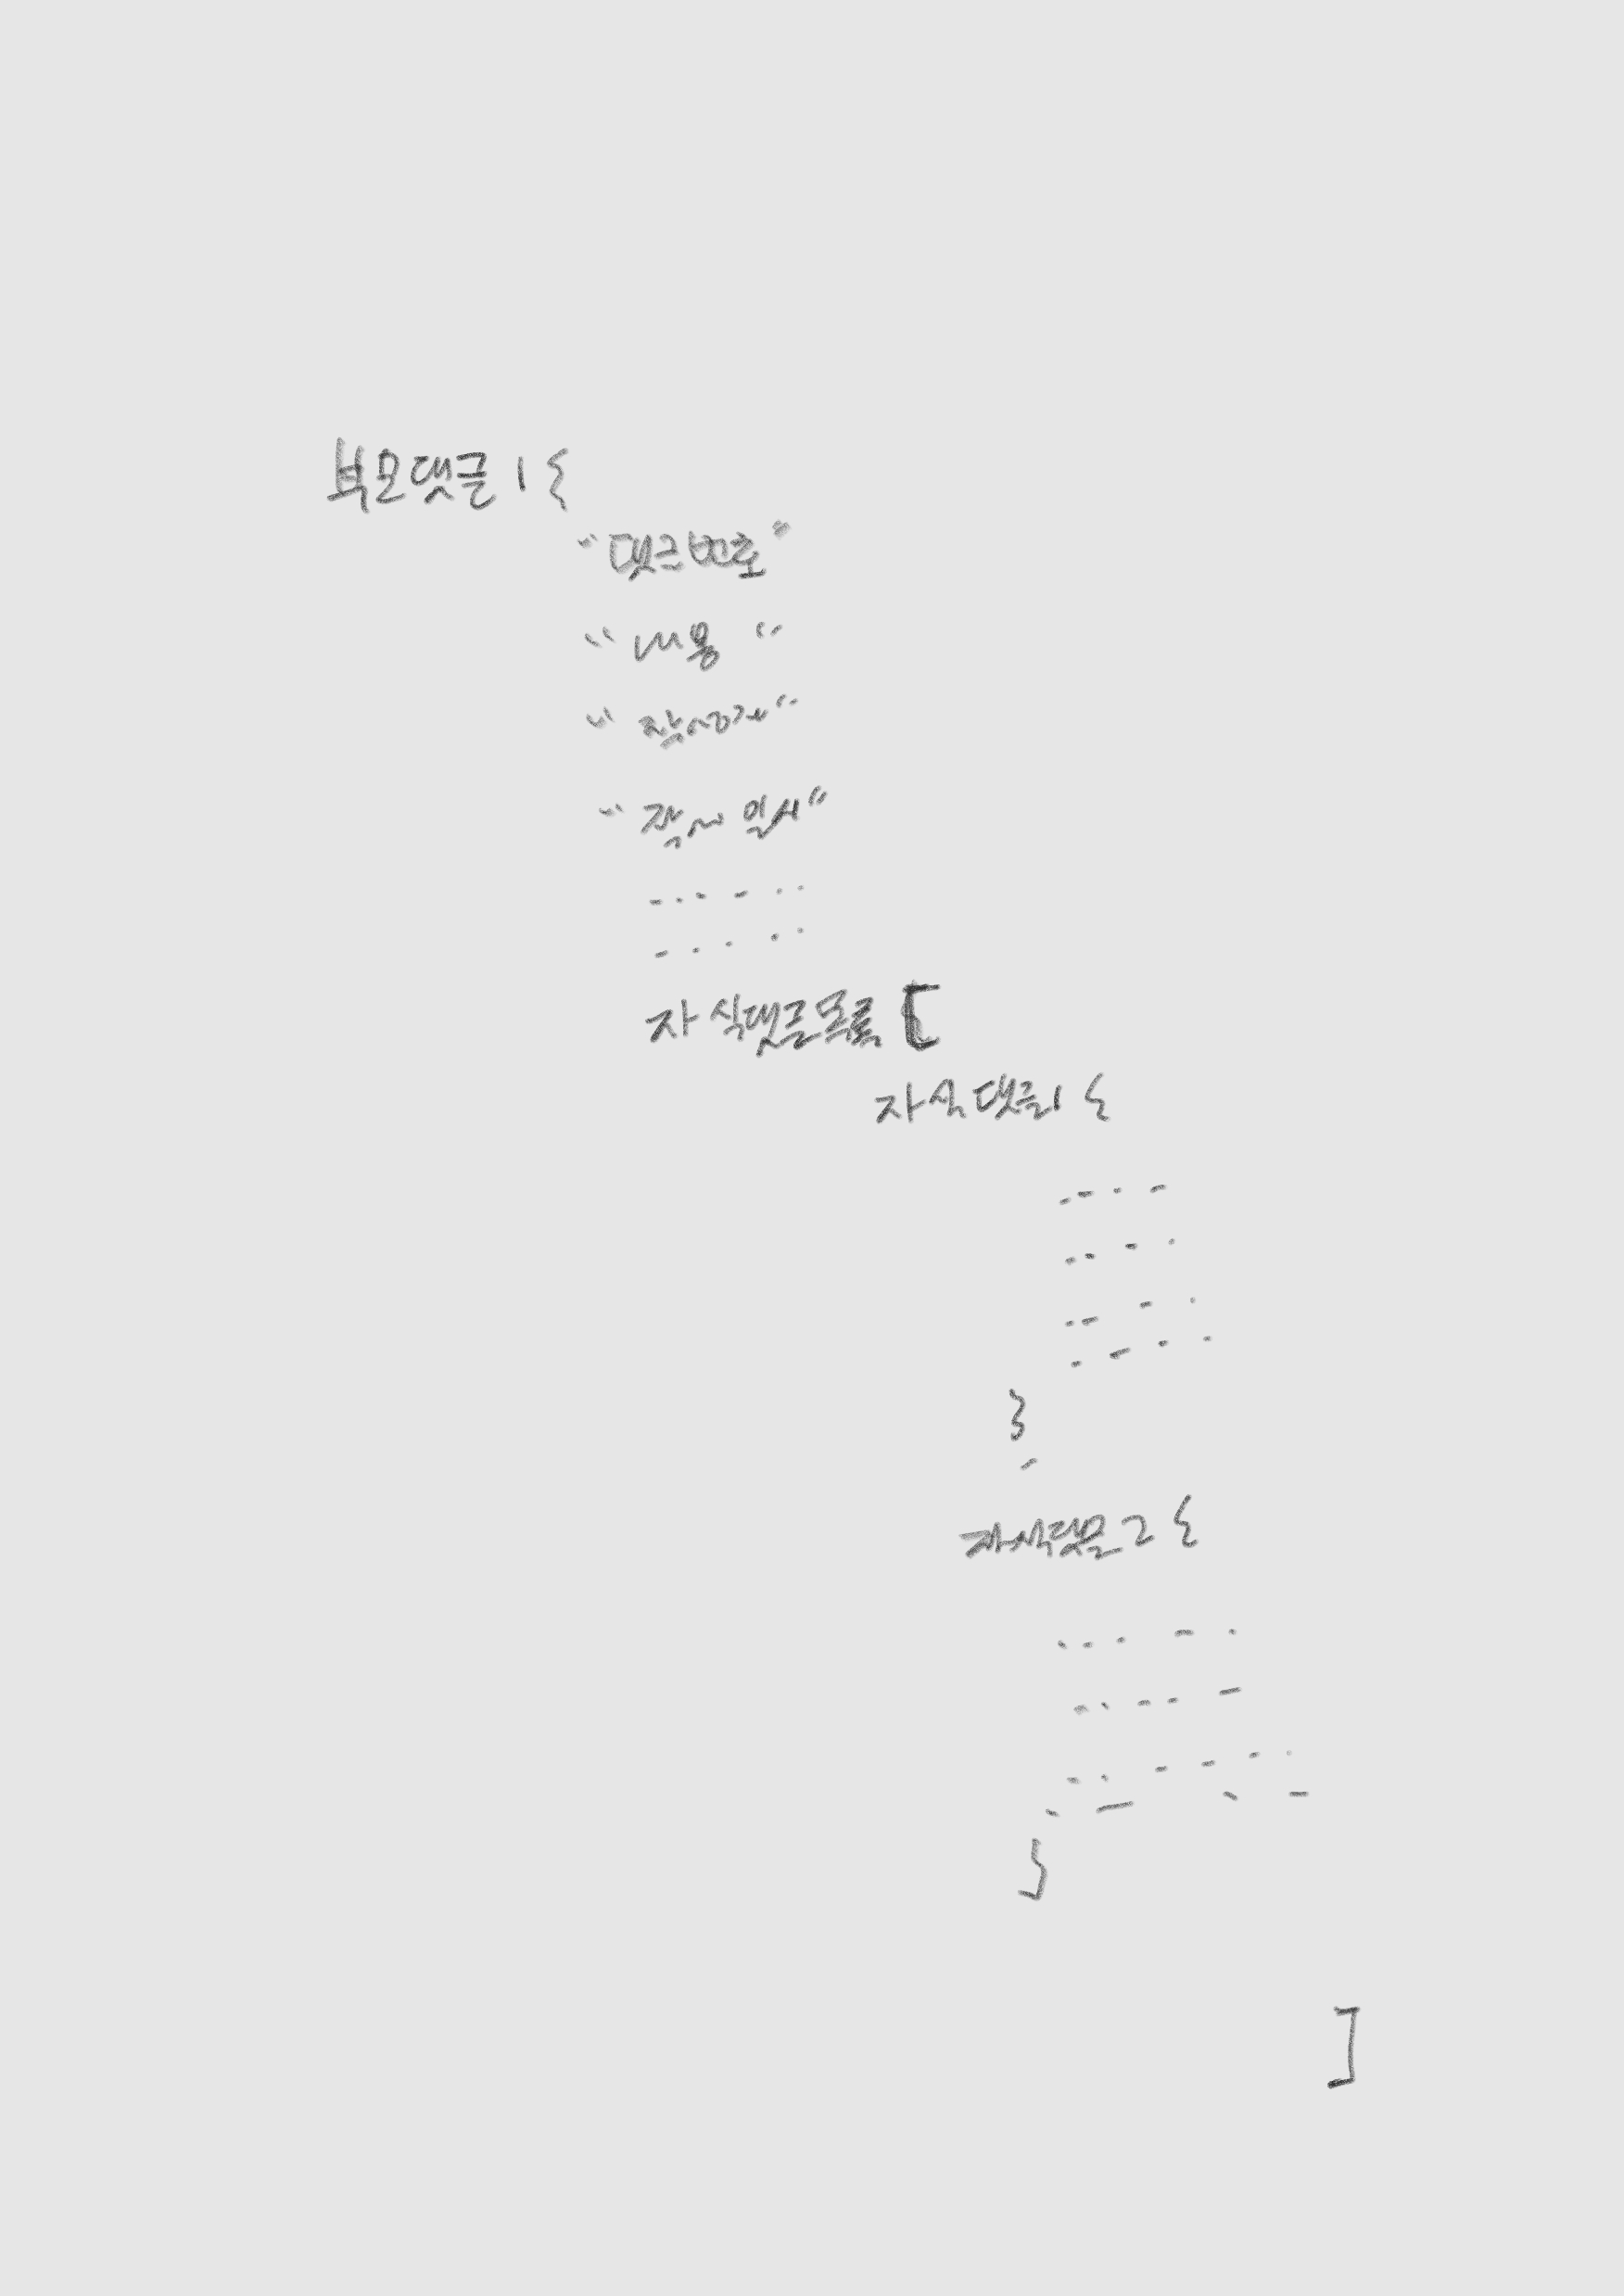 부모댓글 1 {
"댓글번호"
"내용"
"작성자"
"작성 일시"
자식댓글목록 [
자식댓글1 {
}
,
자식댓글 2 {
}
]